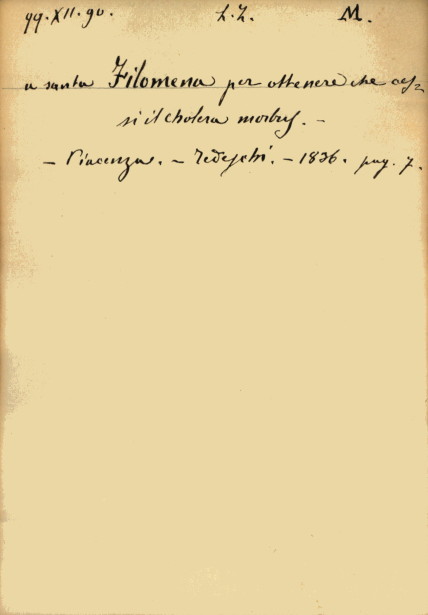 99.XII.90. L.L. M.
a santa Filomena per ottenere che ces=
si il cholera morbus. -
- Piacenza. - Tedeschi. - 1836. pag. 7.